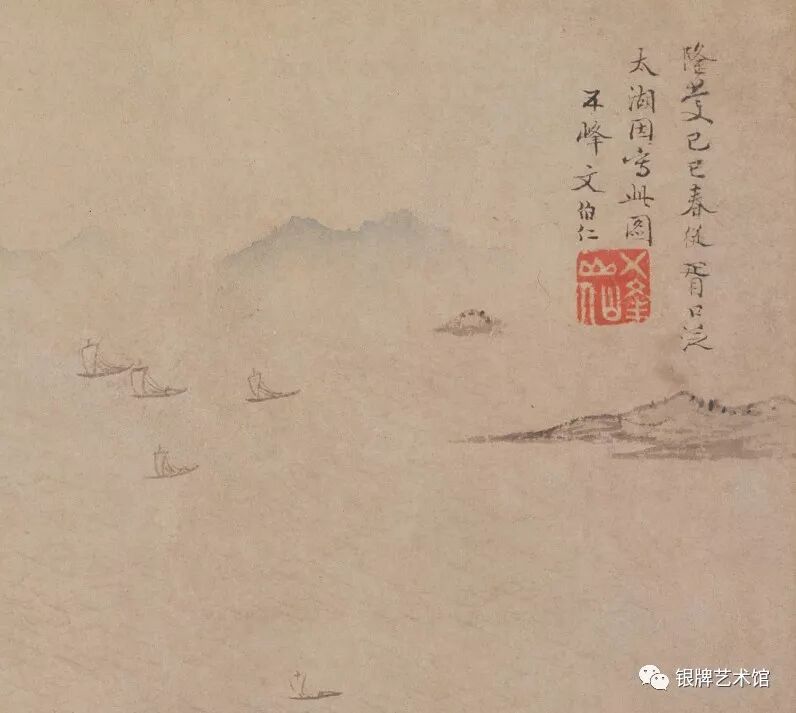 隆慶己巳春從胥口泛
太湖因寫此圖
五峰文伯仁
五峰
银牌艺术馆